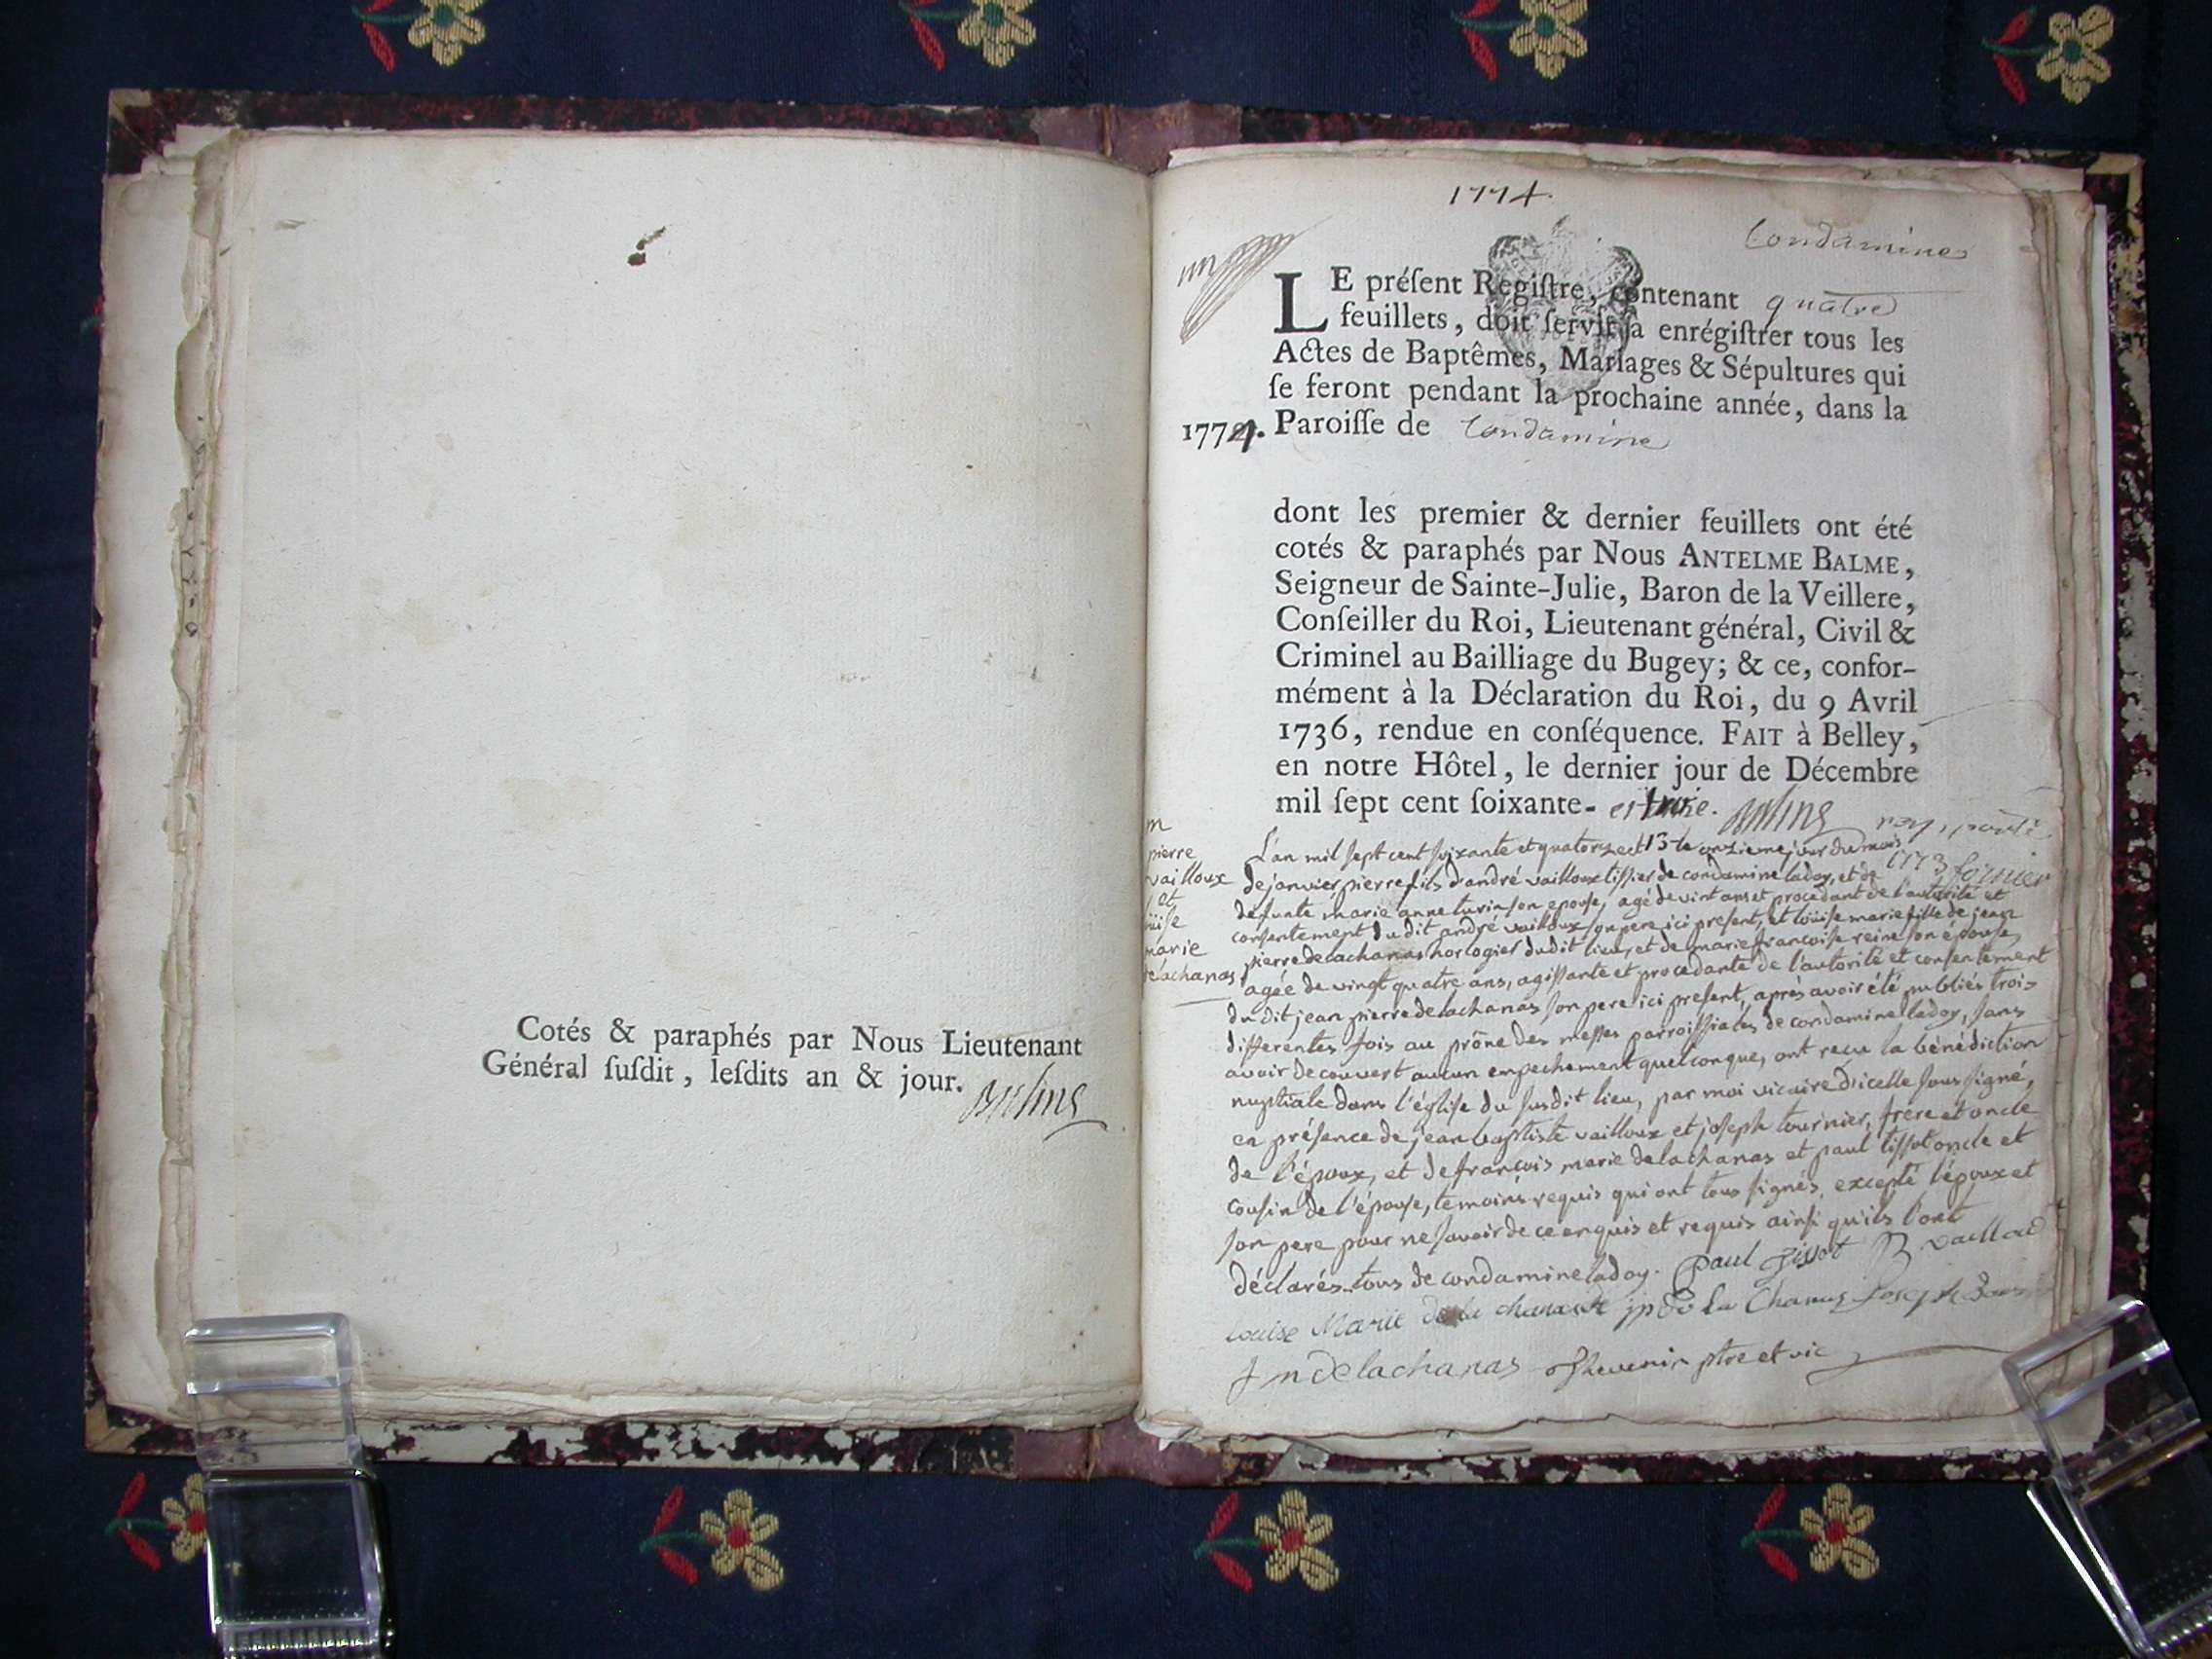 Cotés & paraphés par Nous Lieutenant
Général ſuſdit, leſdits an & jour.
1774.
Condamine
LE préſent Regiſtre, contenant quatre
feuillets, doit ſervir à enrégiſtrer tous les
Actes de Baptêmes, Mariages & Sépultures qui
ſe feront pendant la prochaine année, dans la
1774. Paroiſſe de Condamine
dont les premier & dernier feuillets ont été
cotés & paraphés par Nous ANTELME BALME,
Seigneur de Sainte-Julie, Baron de la Veillere,
Conſeiller du Roi, Lieutenant général, Civil &
Criminel au Bailliage du Bugey; & ce, confor-
mément à la Déclaration du Roi, du 9 Avril
1736, rendue en conſéquence. FAIT à Belley,
en notre Hôtel, le dernier jour de Décembre
mil ſept cent ſoixante-
m
pierre
vailloux
et
loüise
marie
delachanas
L'an mil sept cent soixante et quatorze et le onzieme jour du mois
de janvier pierre fils d'andré vailloux tissier de condamine ladoy, et de
defunte marie anne turin son epouse, agé de vint ans et procedant de l'autorité et
consentement du dit andré vailloux son pere ici present, et loüise marie fille de jean
pierre delachanas horlogier dudit lieu, et de marie francoise reine son épouse,
agée de vingt quatre ans, agissante et procedante de l'autorité et consentement
du dit jean pierre delachanas son pere ici present, après avoir été publiés trois
differentes fois au prône des messes parroissiales de condamine ladoy, sans
avoir decouvert aucun empechement quelconque, ont recu la bénédiction
nuptiale dans l'église du susdit lieu, par moi vicaire d'icelle soussigné,
en présence de jean baptiste vailloux et joseph tournier, frere et oncle
de l'époux, et de francois marie delachanas et paul tissot oncle et
cousin de l'épouse, temoins requis qui ont tous signés, excepté l'époux et
son pere pour ne savoir de ce enquis et requis ainsi qu'ils l'ont
déclarés tous de condamine ladoy. paul tissot
louise Marie de la chanas
f m delachanas Thevenin ptre et vic